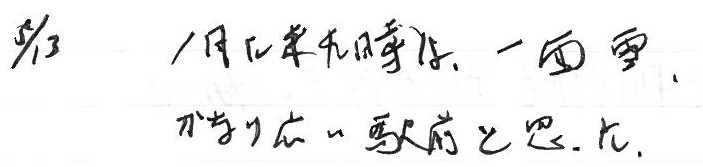 5/13 1月に来た時は、一面雪、
かなり広い駅前と思った。